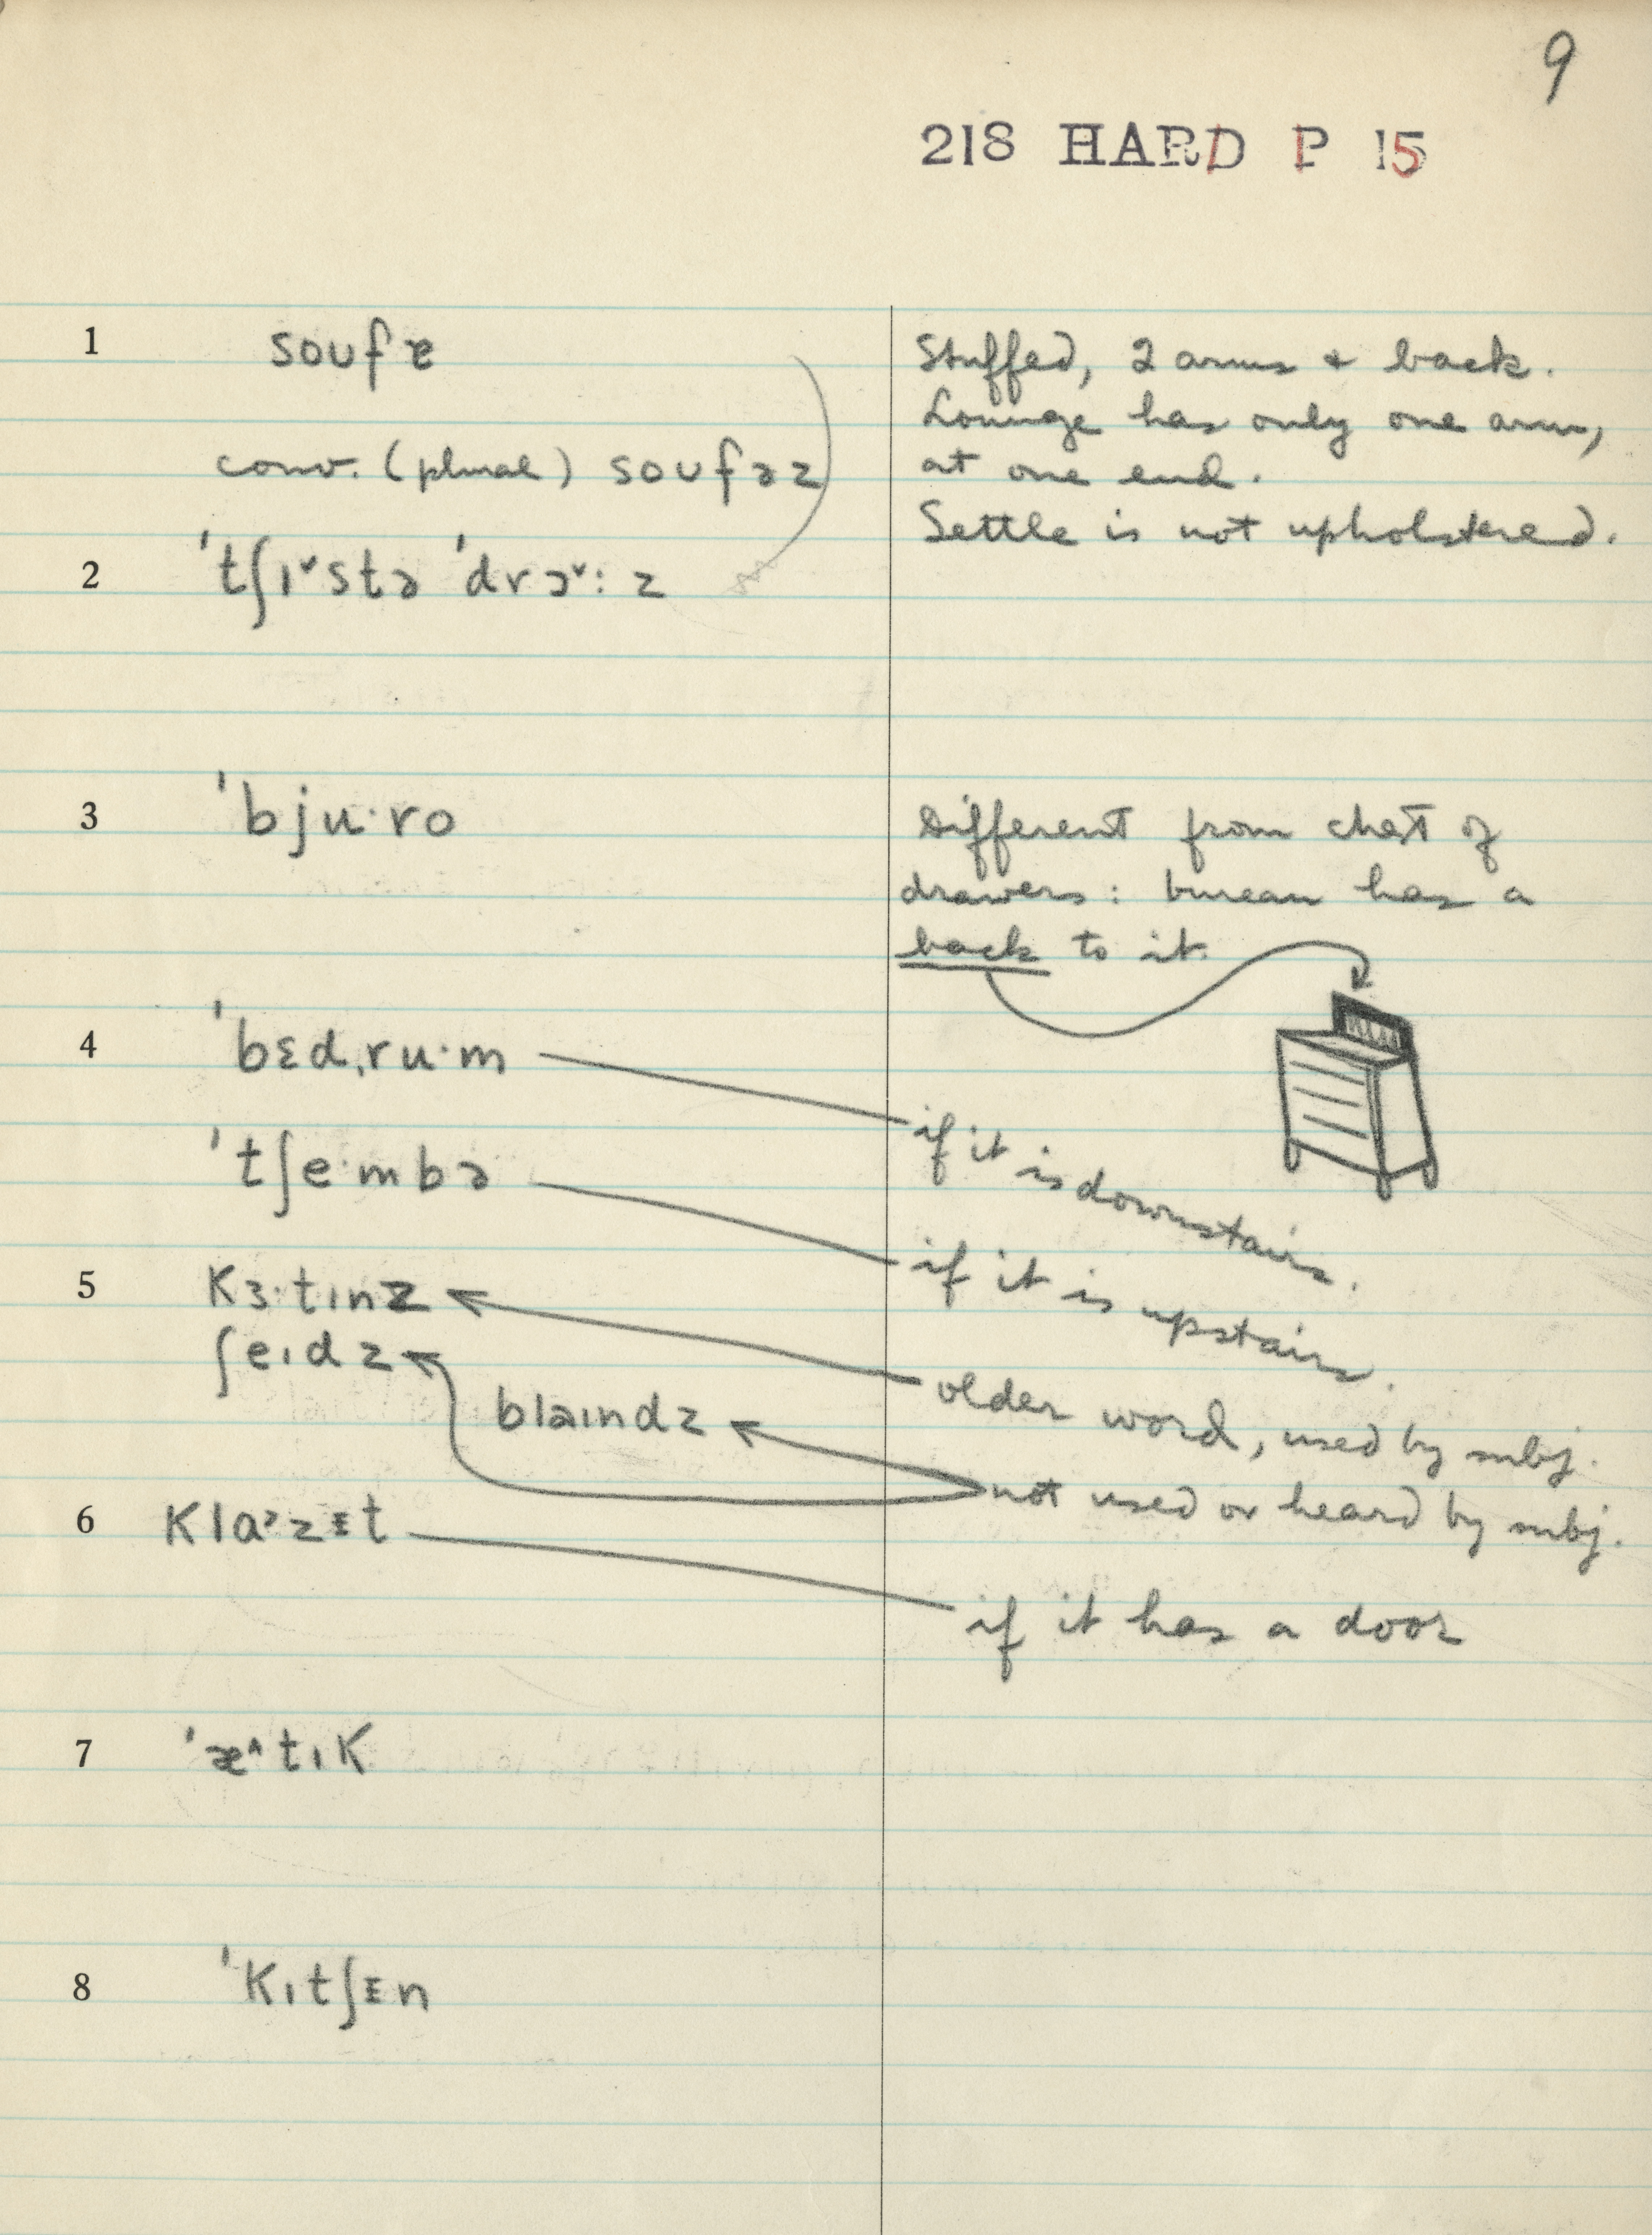 9
218 HARD P 15
1 soufɐ
Stuffed, 2 arms + back.
Lounge has only one arm,
conv. (plural) soufəz
at one end.
Settle is not upholstered.
2 'tʃɪ˅stə 'drɔ˅:z
3 'bju·ro
Different from chest of
drawers: bureau has a
back to it.
4 'bɛdˌru·m
if it is downstairs.
'tʃe·mbə
if it is upstairs.
5 kɜ·tɪnz
older word, used by subj.
ʃeɪdz
blaɪndz
not used or heard by subj.
6 klɑ˒zɪt
if it has a door
7 'æ^tɪk
8 'kɪtʃɪn